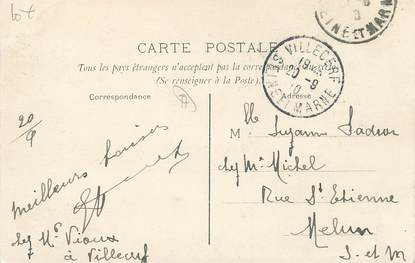 CARTE POSTALE
Tous les pays étrangers n'acceptent pas la correspondance
(Se renseigner à la Poste)
Correspondance
Adresse
VILLECERF
SEINE ET MARNE
20-9
SEINE ET MARNE
20/9
Meilleurs baisers
chez Mr Vioux
à Villecerf
Mlle Suzanne
chez Mr Michel
Rue St Etienne
Melun
S. et M.